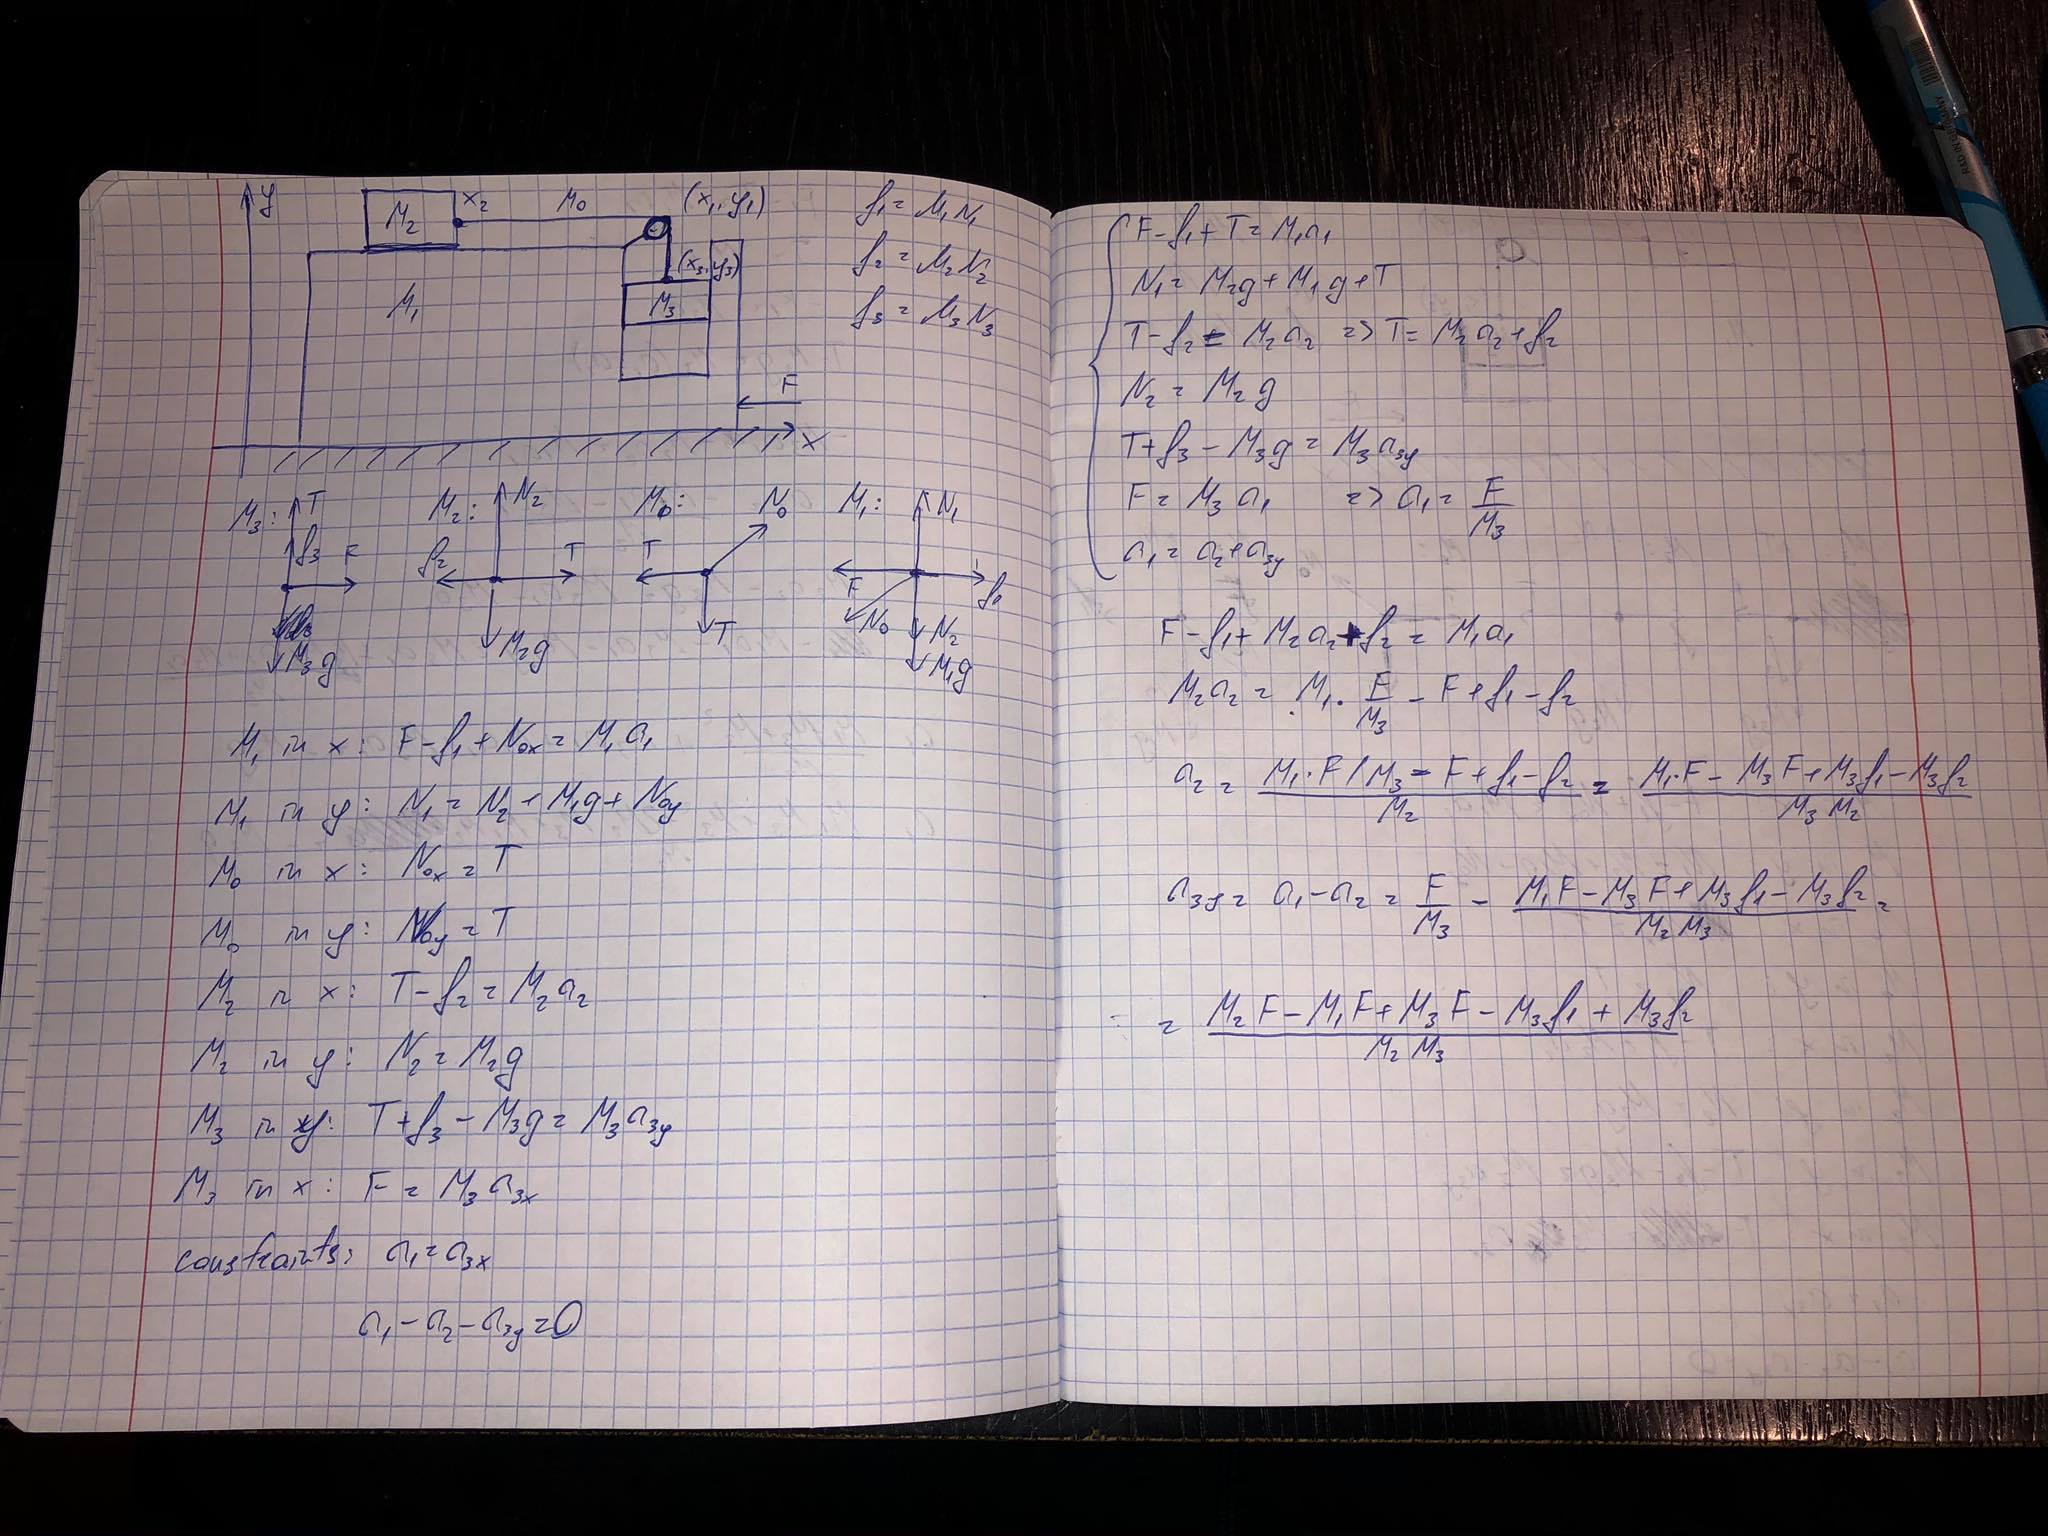 y
M₂ x₂ M₀ (x₁, y₁)
f₁ = μ₁N₁
(x₃, y₃)
f₂ = μ₂N₂
M₁ M₃
f₃ = μ₃N₃
F
x
M₃: T f₃ F M₃g
M₂: N₂ f₂ T M₂g
M₀: N₀ T T
M₁: N₁ F f₁ N₀ N₂ M₁g
M₁ in x: F - f₁ + N₀ₓ = M₁a₁
M₁ in y: N₁ = N₂ + M₁g + N₀y
M₀ in x: N₀ₓ = T
M₀ in y: N₀y = T
M₂ in x: T - f₂ = M₂a₂
M₂ in y: N₂ = M₂g
M₃ in y: T + f₃ - M₃g = M₃a₃y
M₃ in x: F = M₃a₃ₓ
constraints: a₁ = a₃ₓ
a₁ - a₂ - a₃y = 0
F - f₁ + T = M₁a₁
N₁ = M₂g + M₁g + T
T - f₂ = M₂a₂ => T = M₂a₂ + f₂
N₂ = M₂g
T + f₃ - M₃g = M₃a₃y
F = M₃a₁ => a₁ = F/M₃
a₁ = a₂ + a₃y
F - f₁ + M₂a₂ + f₂ = M₁a₁
M₂a₂ = M₁ · F/M₃ - F + f₁ - f₂
a₂ = (M₁·F/M₃ - F + f₁ - f₂)/M₂ = (M₁·F - M₃F + M₃f₁ - M₃f₂)/(M₃M₂)
a₃y = a₁ - a₂ = F/M₃ - (M₁F - M₃F + M₃f₁ - M₃f₂)/(M₂M₃) =
= (M₂F - M₁F + M₃F - M₃f₁ + M₃f₂)/(M₂M₃)